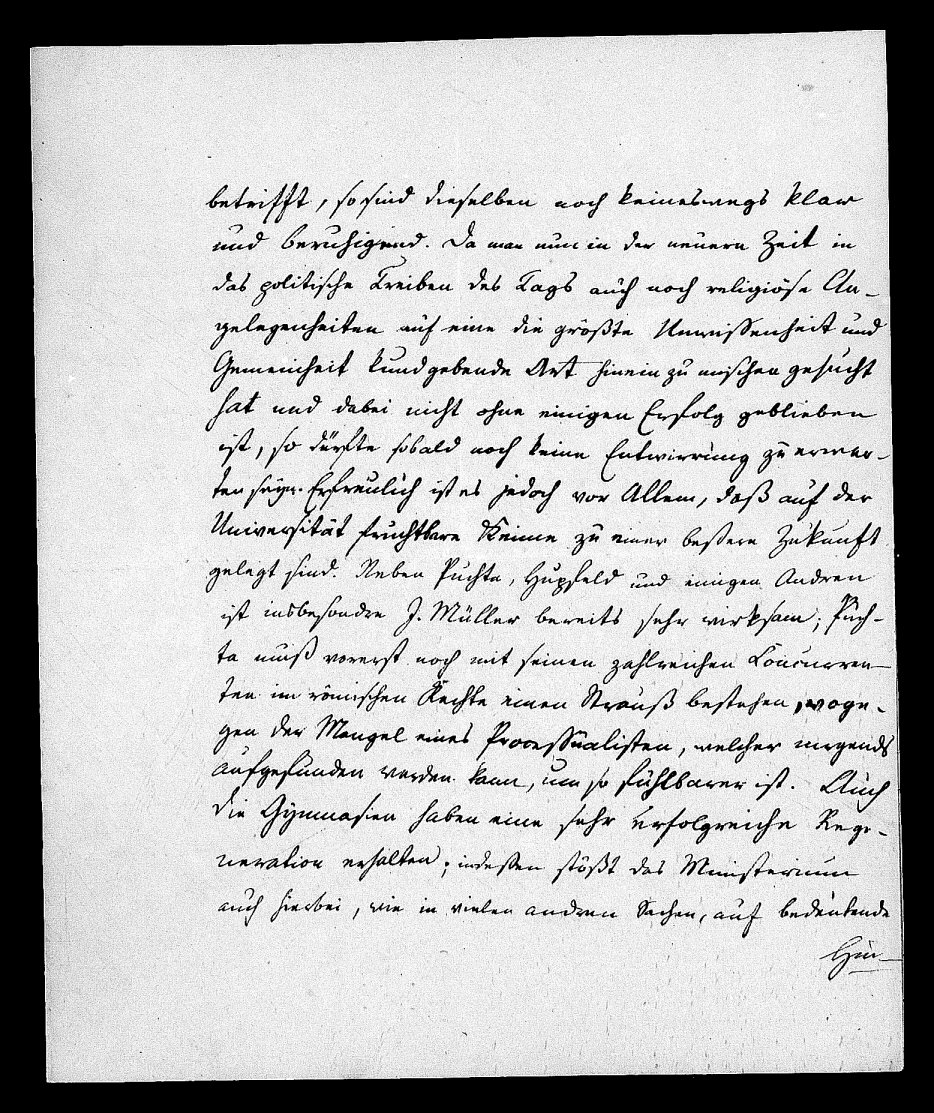 betrifft, so sind dieselben noch keineswegs klar
und beruhigend. Da man nun in der neuern Zeit in
das politische Treiben des Tags auch noch religiöse An-
gelegenheiten auf eine die größte Unwissenheit und
Gemeinheit kundgebende Art hinein zu mischen gesucht
hat und dabei nicht ohne einigen Erfolg geblieben
ist, so dürfte sobald noch keine Entwirrung zu erwar-
ten seyn. Erfreulich ist es jedoch vor Allem, daß auf der
Universität fruchtbare Keime zu einer bessern Zukunft
gelegt sind. Neben Puchta, Hupfeld und einigen Andren
ist insbesondre J. Müller bereits sehr wirksam; Puch-
ta muß vorerst noch mit seinen zahlreichen Concurren-
ten im römischen Rechte einen Strauß bestehen, woge-
gen der Mangel eines Processualisten, welcher nirgends
aufgefunden werden kann, um so fühlbarer ist. Auch
die Gymnasien haben eine sehr erfolgreiche Rege-
neration erhalten; indessen stößt das Ministerium
auch hierbei, wie in vielen andren Sachen, auf bedeutende
Hin-